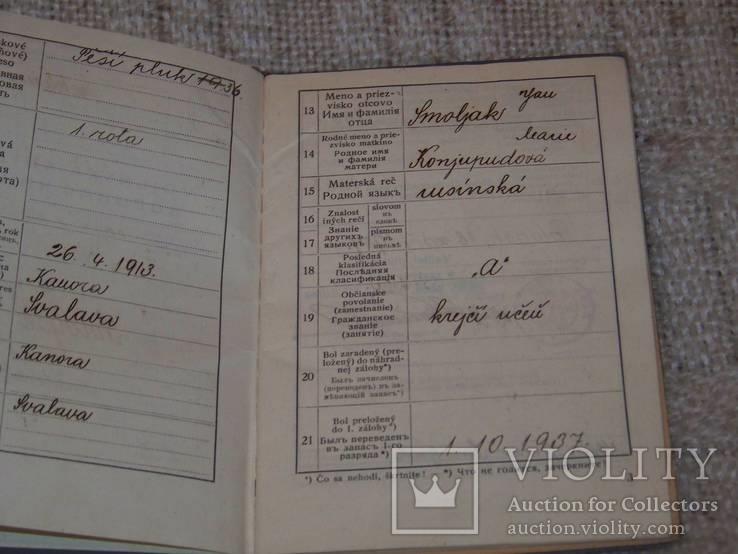 skové
ňové)
Peší pluk 36
1. rota
26. 4. 1913.
Kanora
Svalava
Kanora
Svalava
13
Meno a priez-
visko otcovo
Имя и фамилія
отца
Smoljak
14
Rodné meno a prie-
zvisko matkino
Родное имя
и фамилія
матери
Marie
15
Materská reč
Родной языкъ
rusínská
16
17
Znalost
iných rečí
Знаніе
другихъ
языковъ
slovom
písmom
18
Posledná
klasifikácia
Послѣдняя
классификація
„A"
19
Občianske
povolanie
(zamestnanie)
Гражданское
званіе
(занятіе)
krejčí
20
Bol zaradený (pre-
ložený) do náhrad-
nej zálohy*)
Былъ зачисленъ
21
Bol preložený
do 1. zálohy*)
Былъ переведенъ
въ запасъ 1-го
разряда*)
1. 10. 1937.
*) Čo sa nehodí, škrtnite! *) Что не годится, зачеркните
3
VIOLITY
Auction for Collectors
auction.violity.com